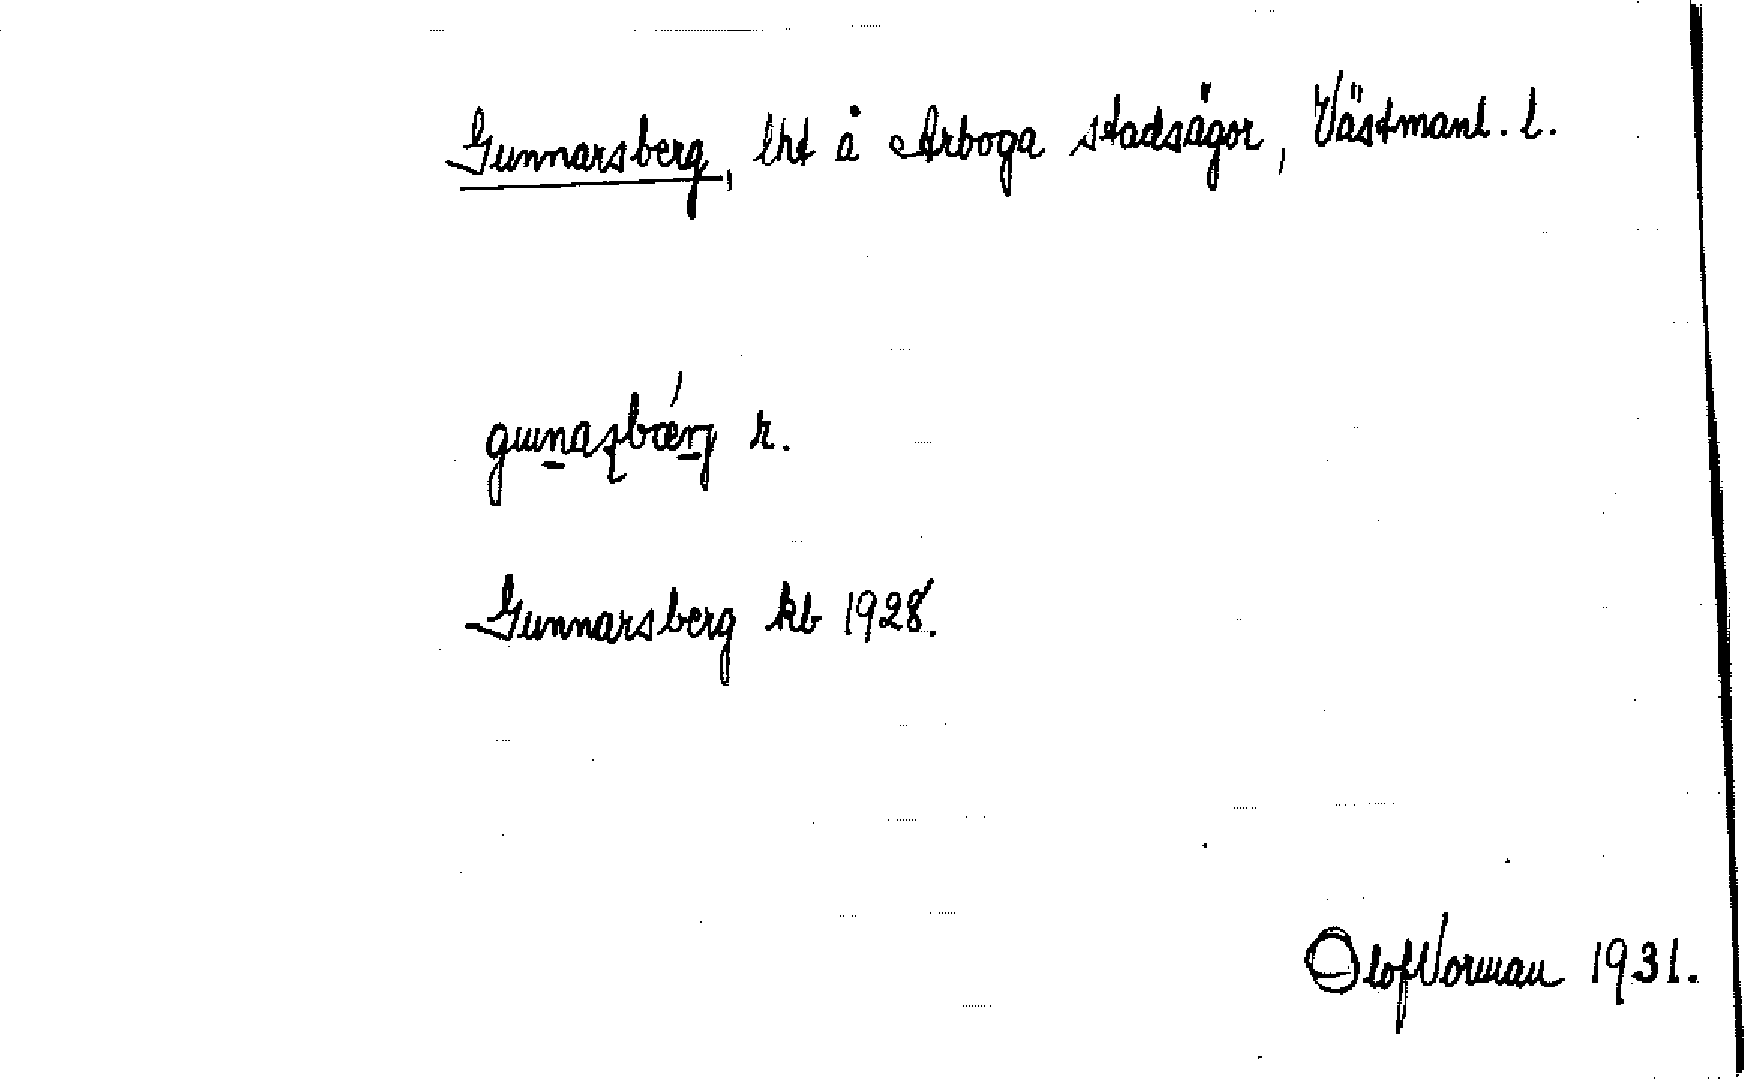 Gunnarsberg, lht å Arboga stadsägor, Västmanl. l.
r.
Gunnarsberg kb 1928.
Olof Norman 1931.